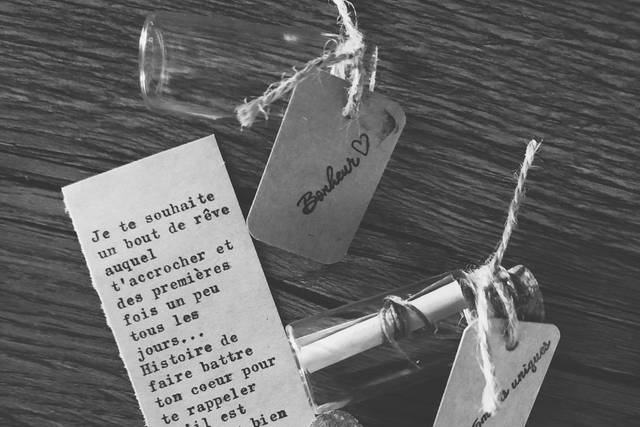 Je te souhaite
un bout de rêve
auquel
t'accrocher et
des premières
fois un peu
tous les
jours...
Histoire de
faire battre
ton cœur pour
te rappeler
est
bien
Bonheur♡
uniques